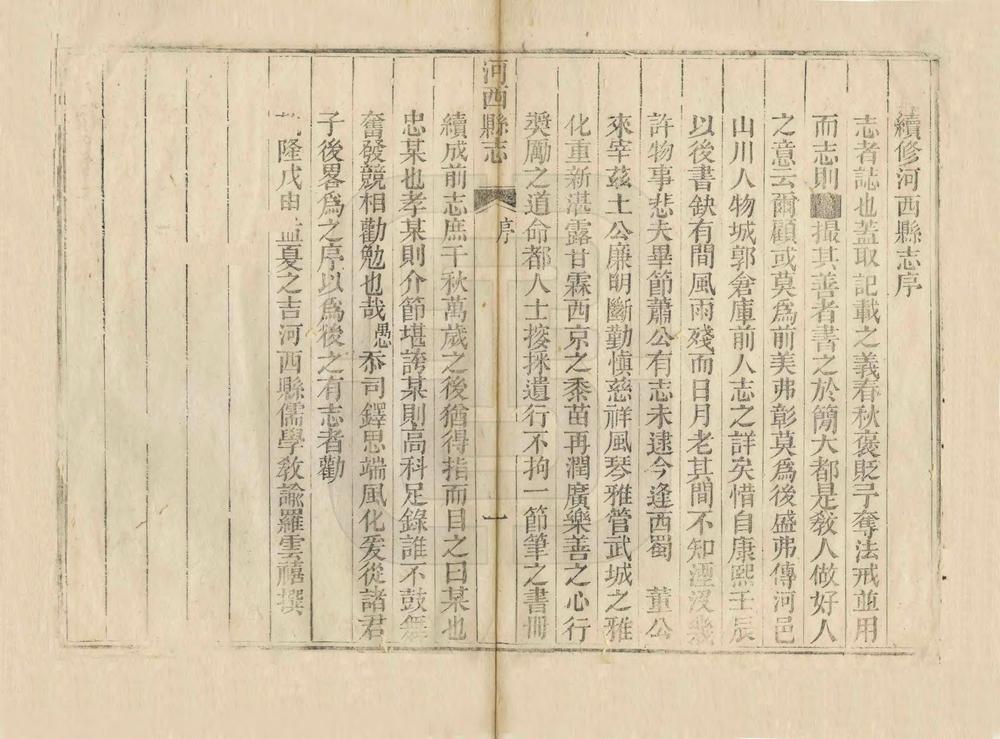 續修河西縣志序
志者誌也蓋取記載之義春秋褒貶予奪法戒並用
而志則撮其善者書之於簡大都是敎人做好人
之意云爾顧或莫爲前美弗彰莫爲後盛弗傳河邑
山川人物城郭倉庫前人志之詳矣惜自康熙壬辰
以後書缺有間風雨殘而日月老其間不知湮沒幾
許物事悲夫畢節蕭公有志未逮今逢西蜀 董公
來宰茲土公廉明斷勤愼慈祥風琴雅管武城之雅
化重新湛露甘霖西京之黍苗再潤廣樂善之心行
奬勵之道命都人士搜採遺行不拘一節筆之書冊
河西縣志 序 一
續成前志庶千秋萬歲之後猶得指而目之曰某也
忠某也孝某則介節堪誇某則高科足錄誰不鼓舞
奮發競相勸勉也哉愚忝司鐸思端風化爰從諸君
子後畧爲之序以爲後之有志者勸
隆戊申孟夏之吉河西縣儒學敎諭羅雲禧撰